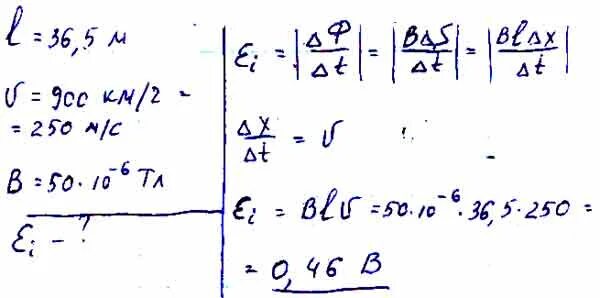 l = 36,5 м
v = 900 км/г =
= 250 м/с
B = 50·10⁻⁶ Тл
Ɛi - ?
Ɛi = |ΔФ/Δt| = |BΔS/Δt| = |BlΔx/Δt|
Δx/Δt = v
Ɛi = Blv = 50·10⁻⁶·36,5·250 =
= 0,46 В